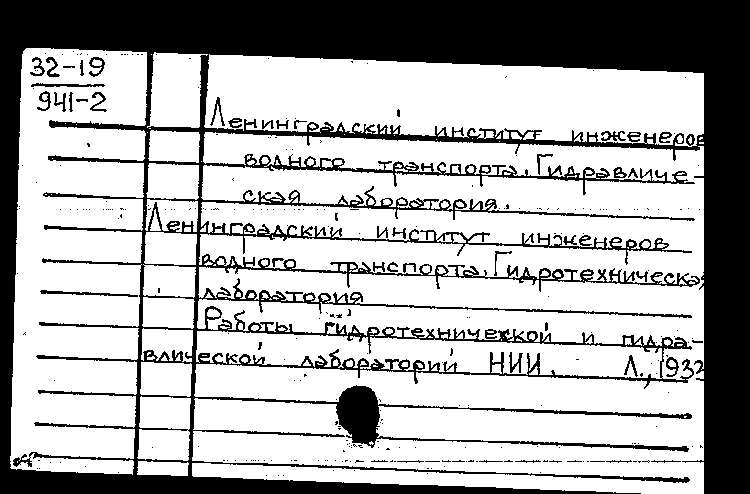 32-19
941-2
Ленинградский институт инженеров
водного транспорта. Гидравличе-
ская лаборатория.
Ленинградский институт инженеров
водного транспорта. Гидротехническая
лаборатория
Работы гидротехнической и гидра-
влической лабораторий НИИ. Л., 1932